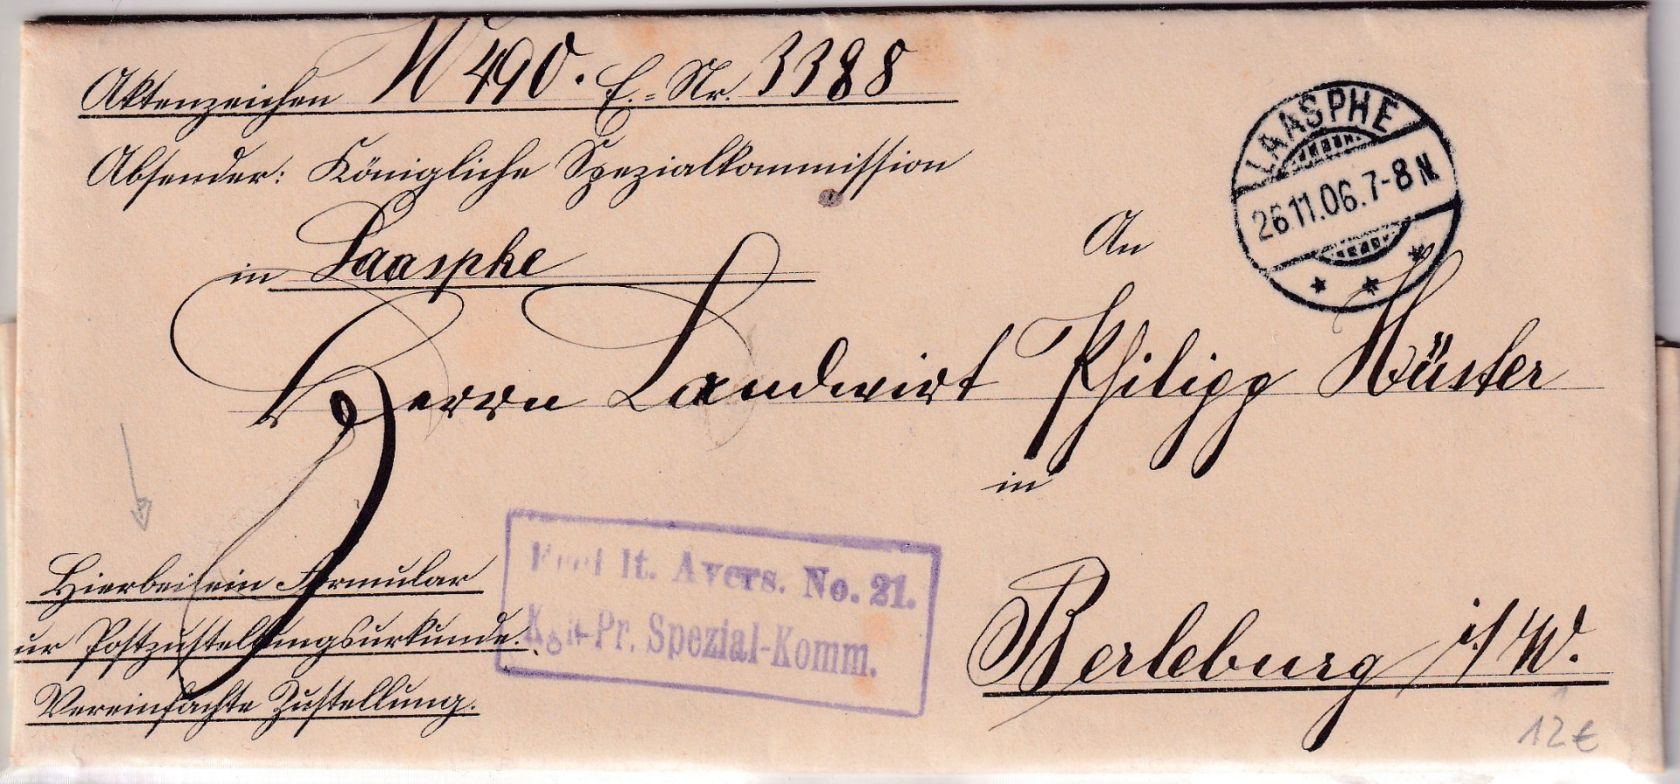 Aktenzeichen W 490. E.-Nr. 3388
Absender: Königliche Spezialkommission
in Laasphe
LAASPHE
26.11.06.7-8N.
An
Herrn Landwirt Philipp Hüster
in
Berleburg i/W.
Hierbei ein Formular
ur Postzustellungsurkunde.
Vereinfachte Zustellung.
Frei lt. Avers. No. 21.
Kgl.-Pr. Spezial-Komm.
12€